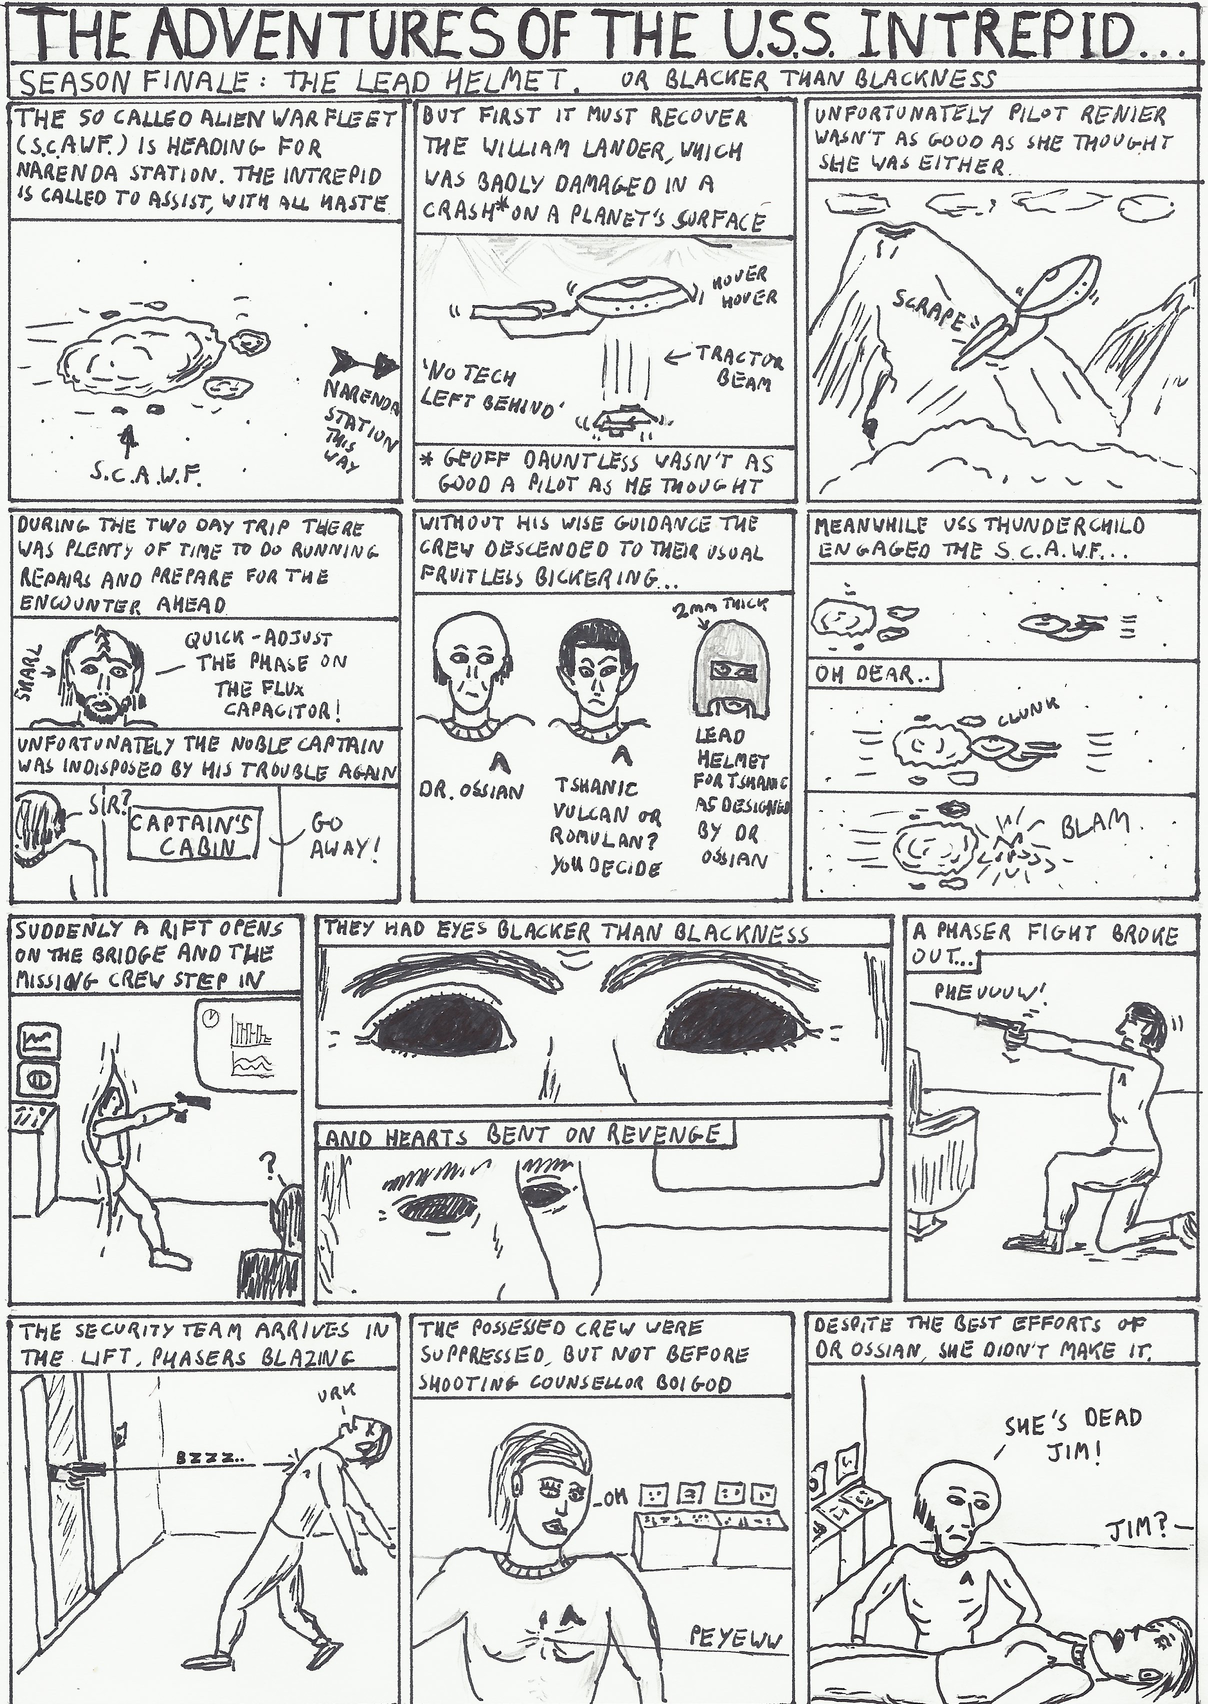 THE ADVENTURES OF THE U.S.S. INTREPID...
SEASON FINALE: THE LEAD HELMET. OR BLACKER THAN BLACKNESS
THE SO CALLED ALIEN WAR FLEET
(S.C.A.W.F.) IS HEADING FOR
NARENDA STATION. THE INTREPID
IS CALLED TO ASSIST, WITH ALL HASTE
NARENDA
STATION
THIS
WAY
S.C.A.W.F.
BUT FIRST IT MUST RECOVER
THE WILLIAM LANDER, WHICH
WAS BADLY DAMAGED IN A
CRASH* ON A PLANET'S SURFACE
HOVER
HOVER
TRACTOR
BEAM
'NO TECH
LEFT BEHIND'
* GEOFF DAUNTLESS WASN'T AS
GOOD A PILOT AS HE THOUGHT
UNFORTUNATELY PILOT RENIER
WASN'T AS GOOD AS SHE THOUGHT
SHE WAS EITHER.
SCRAPE
DURING THE TWO DAY TRIP THERE
WAS PLENTY OF TIME TO DO RUNNING
REPAIRS AND PREPARE FOR THE
ENCOUNTER AHEAD
SNARL
QUICK-ADJUST
THE PHASE ON
THE FLUX
CAPACITOR!
UNFORTUNATELY THE NOBLE CAPTAIN
WAS INDISPOSED BY HIS TROUBLE AGAIN
SIR?
CAPTAIN'S
CABIN
GO
AWAY!
WITHOUT HIS WISE GUIDANCE THE
CREW DESCENDED TO THEIR USUAL
FRUITLESS BICKERING...
2MM THICK
DR. OSSIAN
TSHANIC
VULCAN OR
ROMULAN?
YOU DECIDE
LEAD
HELMET
FOR TSHANIC
AS DESIGNED
BY DR
OSSIAN
MEANWHILE USS THUNDERCHILD
ENGAGED THE S.C.A.W.F...
OH DEAR..
CLUNK
BLAM.
SUDDENLY A RIFT OPENS
ON THE BRIDGE AND THE
MISSING CREW STEP IN
?
THEY HAD EYES BLACKER THAN BLACKNESS
AND HEARTS BENT ON REVENGE
A PHASER FIGHT BROKE
OUT...
PHEUUUW!
THE SECURITY TEAM ARRIVES IN
THE LIFT, PHASERS BLAZING
URK
BZZZ..
THE POSSESSED CREW WERE
SUPPRESSED, BUT NOT BEFORE
SHOOTING COUNSELLOR BOIGOD
OH
PEYEWW
DESPITE THE BEST EFFORTS OF
DR OSSIAN, SHE DIDN'T MAKE IT.
SHE'S DEAD
JIM!
JIM?